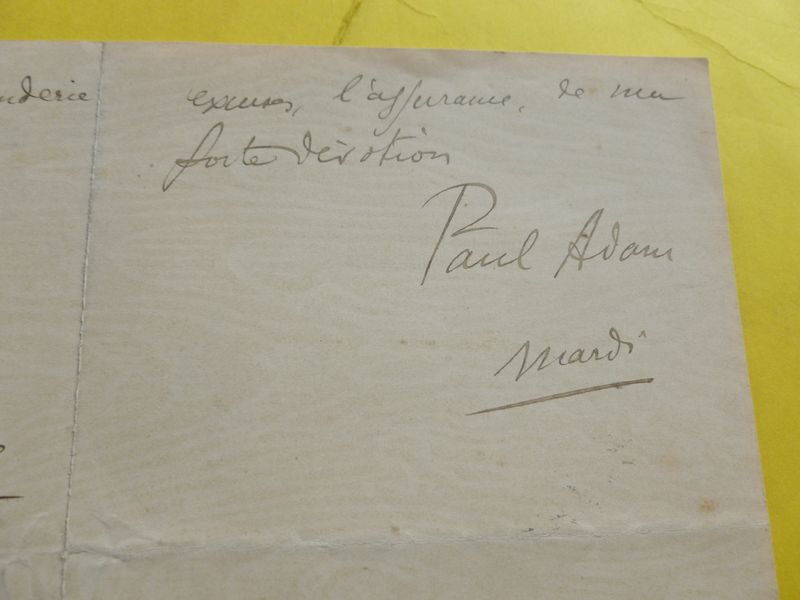 nderie
excuses, l'assurance, de ma
forte dévotion
Paul Adam
Mardi